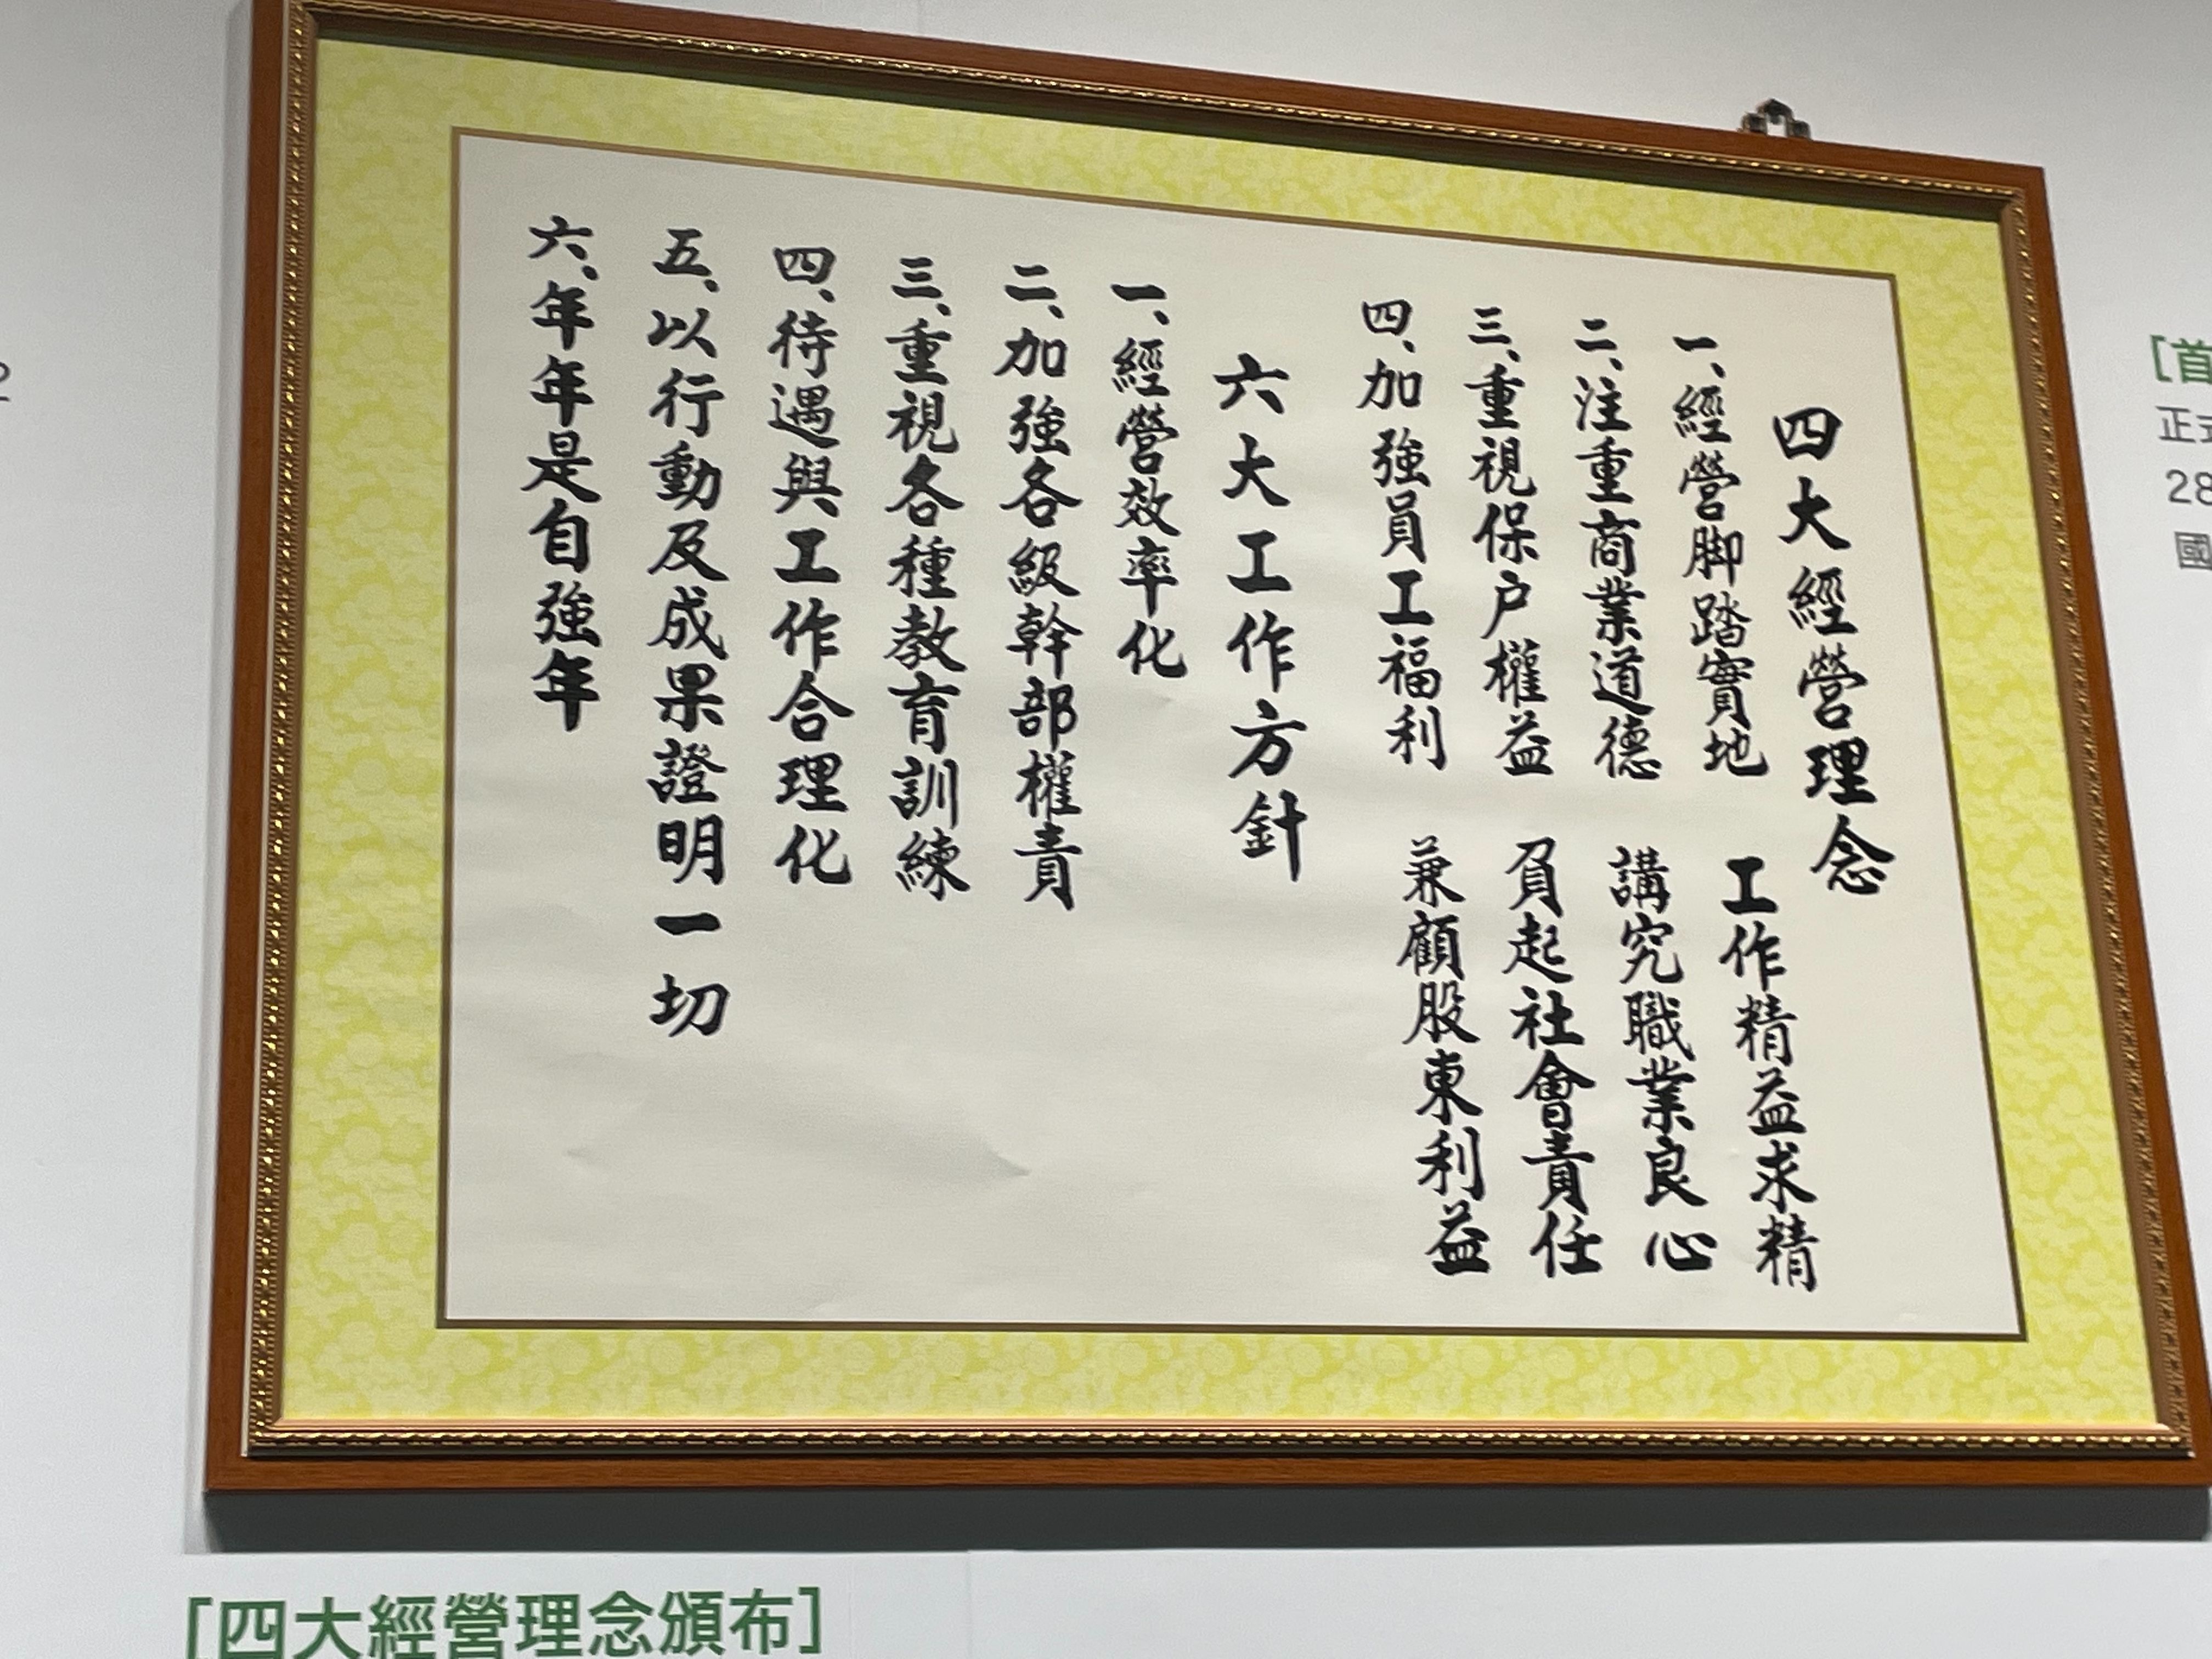 四大經營理念
一、經營脚踏實地 工作精益求精
二、注重商業道德 講究職業良心
三、重視保户權益 負起社會責任
四、加強員工福利 兼顧股東利益
六大工作方針
一、經營效率化
二、加強各級幹部權責
三、重視各種教育訓練
四、待遇與工作合理化
五、以行動及成果證明一切
六、年年是自強年
[四大經營理念頒布]
[首
正式
28
國